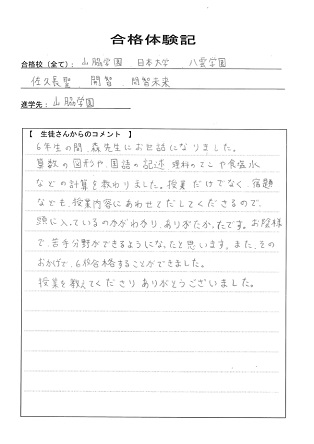 合格体験記
合格校(全て): 山脇学園 日本大学 八雲学園
佐久長聖、開智、開智未来
進学先: 山脇学園
【 生徒さんからのコメント 】
6年生の間、森先生にお世話になりました。
算数の図形や、国語の記述、理科のてこや食塩水
などの計算を教わりました。授業だけでなく、宿題
なども、授業内容にあわせてだしてくださるので、
頭に入っているのかがわかり、ありがたかったです。お陰様
で、苦手分野ができるようになったと思います。また、その
おかげで、6校合格することができました。
授業を教えてくださりありがとうございました。